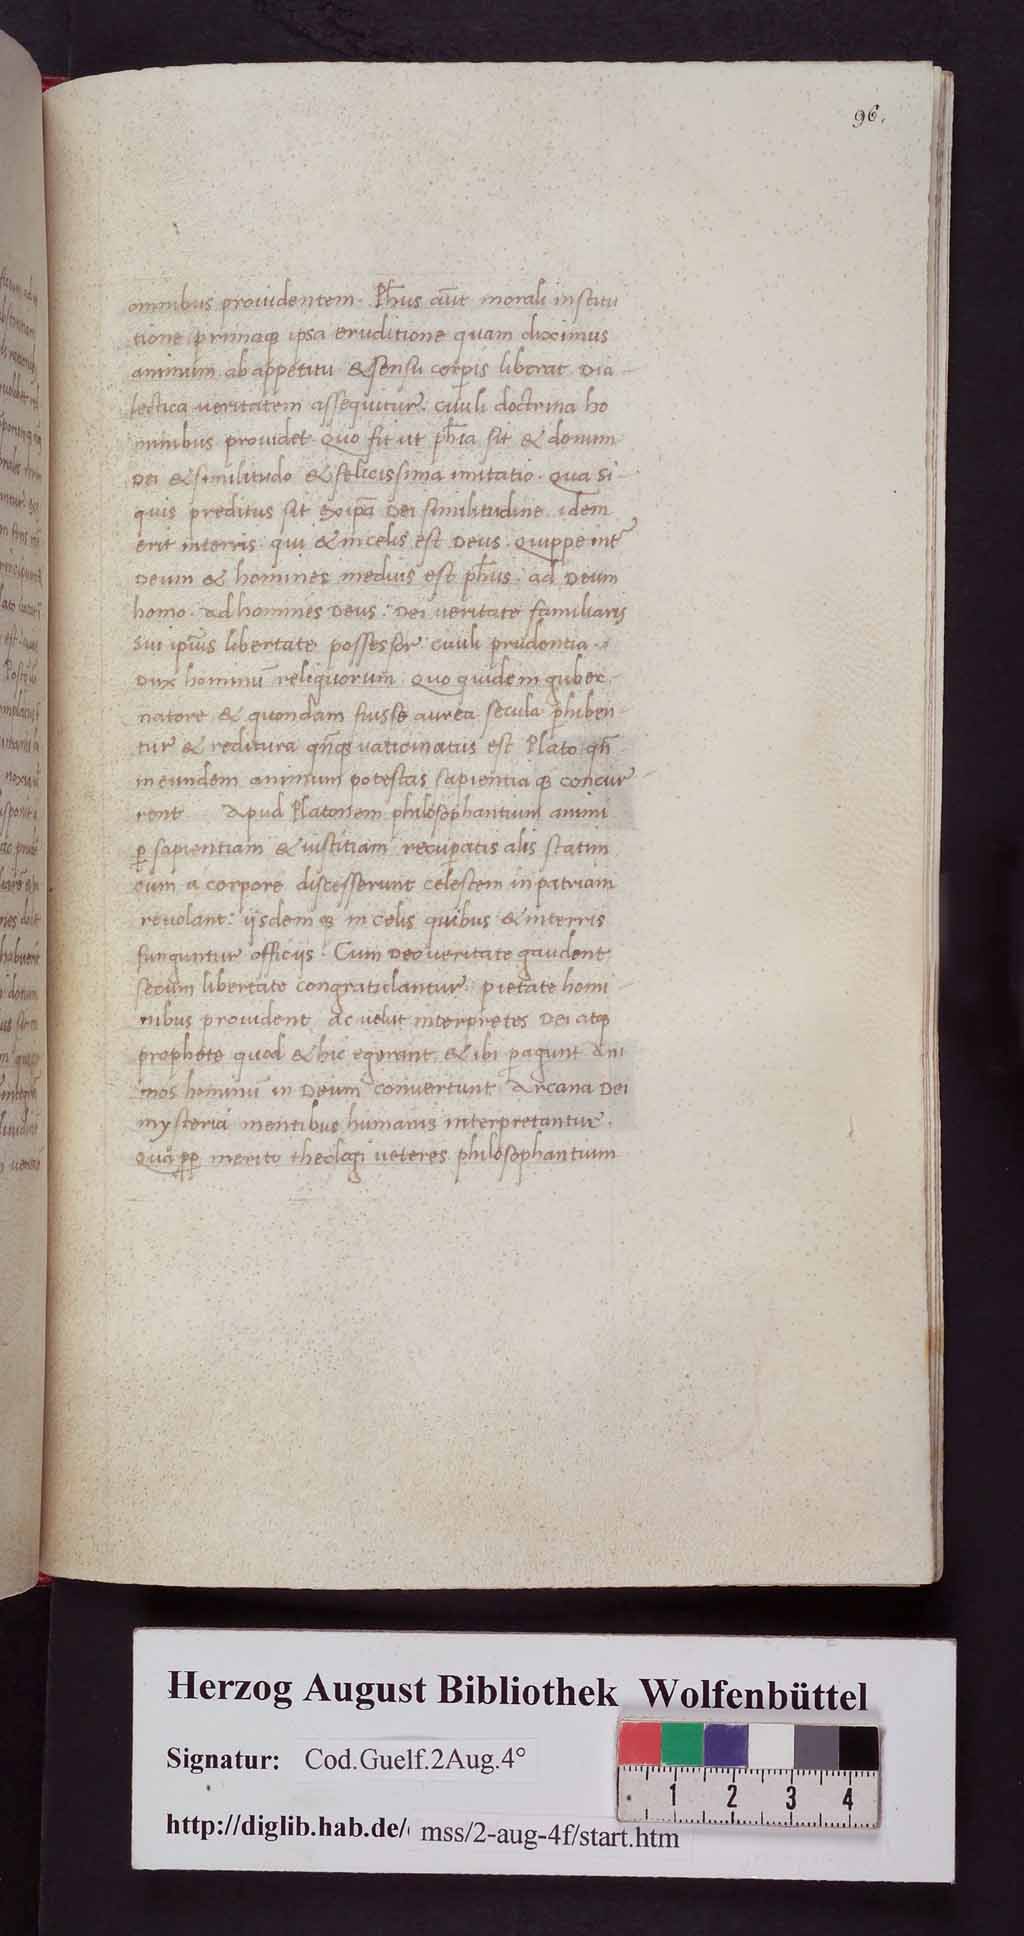 96.
omnibus prouidentem. Ph̄us aūt morali institu
tione primaq; ipsa eruditione quam diximus
animum ab appetitu & sensu corpīs liberat Dia-
lectica veritatem assequitur. ciuili doctrina ho
minibus prouidet. Quo fit ut ph̄ia sit & donum
Dei & similitudo & felicissima imitatio. Qua si-
quis preditus sit ex ip̄a Dei similitudine idem
erit in terris qui & in celis est Deus. Quippe int̄
Deum & homines medius est ph̄us: ad Deum
homo. ad homines Deus: Dei veritate familiaris
sui ip̄ius libertate possessor ciuili prudentia.
Dux hominū reliquorum. Quo quidem guber-
natore & quondam fuisse aurea secula phiben-
tur & reditura qn̄q; vaticinatus est Plato qn̄
in eundem animum potestas sapientia q; concur-
rent Apud Platonem philosophantium animi
ꝑ sapientiam & iustitiam recuꝑatis alis statim
cum a corpore discesserunt celestem in patriam
reuolant: ijsdem q; in celis quibus & in terris
funguntur officijs. Cum Deo veritate gaudent
secum libertate congratulantur. pietate homi-
nibus prouident, ac velut interpretes Dei atq;
prophete quod & hic egerant & ibi ꝑagunt Ani
mos hominū in Deum convertunt Arcana Dei
mysteria mentibus humanis interpretantur.
Quāꝑꝑ merito theologi veteres philosophantium
Herzog August Bibliothek Wolfenbüttel
Signatur: Cod.Guelf.2Aug.4°
http://diglib.hab.de/ mss/2-aug-4f/start.htm
1 2 3 4